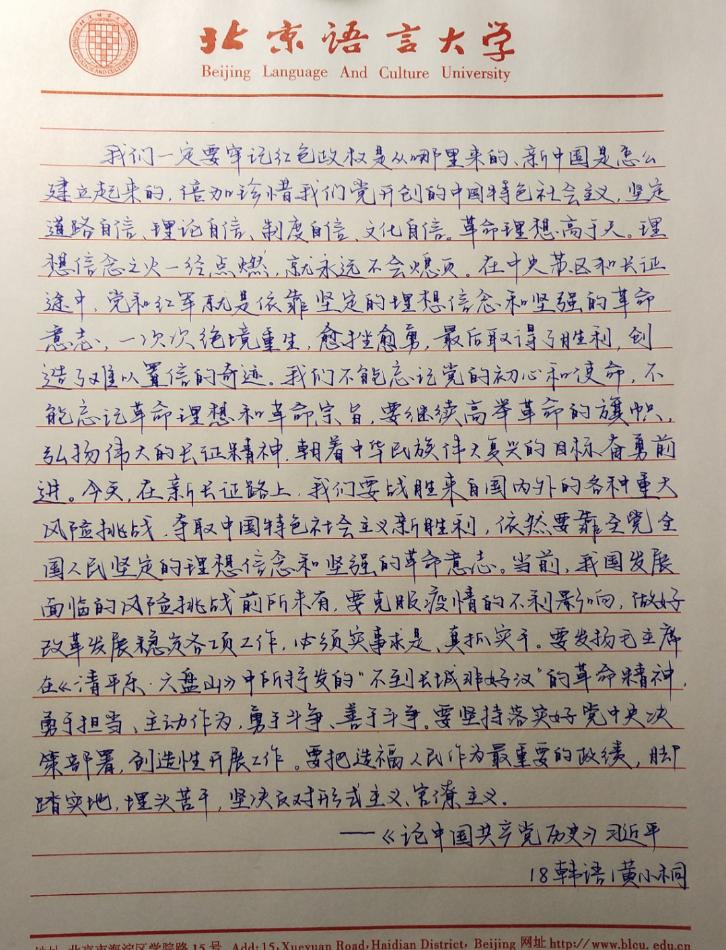 北京语言大学
Beijing Language And Culture University
我们一定要牢记红色政权是从哪里来的、新中国是怎么
建立起来的，倍加珍惜我们党开创的中国特色社会主义，坚定
道路自信、理论自信、制度自信、文化自信。革命理想高于天。理
想信念之火一经点燃，就永远不会熄灭。在中央苏区和长征
途中，党和红军就是依靠坚定的理想信念和坚强的革命
意志，一次次绝境重生，愈挫愈勇，最后取得了胜利，创
造了难以置信的奇迹。我们不能忘记党的初心和使命，不
能忘记革命理想和革命宗旨，要继续高举革命的旗帜，
弘扬伟大的长征精神，朝着中华民族伟大复兴的目标奋勇前
进。今天，在新长征路上，我们要战胜来自国内外的各种重大
风险挑战，夺取中国特色社会主义新胜利，依然要靠全党全
国人民坚定的理想信念和坚强的革命意志。当前，我国发展
面临的风险挑战前所未有，要克服疫情的不利影响，做好
改革发展稳定各项工作，必须实事求是，真抓实干。要发扬毛主席
在《清平乐·六盘山》中所抒发的“不到长城非好汉”的革命精神，
勇于担当、主动作为，勇于斗争、善于斗争。要坚持落实好党中央决
策部署，创造性开展工作。要把造福人民作为最重要的政绩，脚
踏实地，埋头苦干，坚决反对形式主义、官僚主义。
——《论中国共产党历史》习近平
18韩语1黄小桐
地址：北京市海淀区学院路15号 Add: 15, Xueyuan Road, Haidian District, Beijing 网址 http://www.blcu.edu.cn